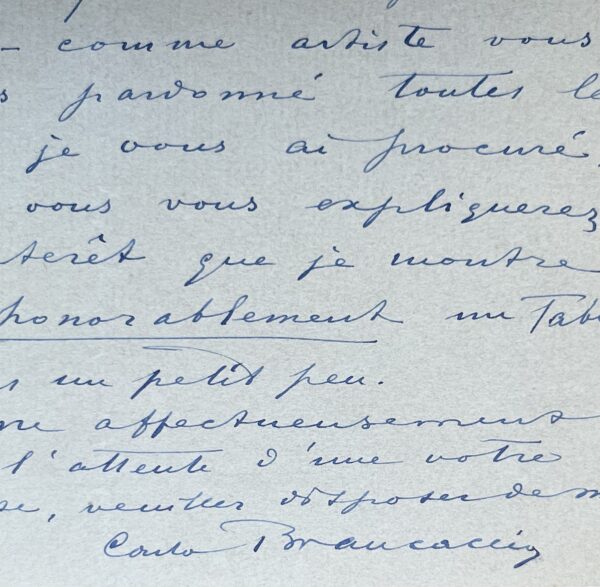 – comme artiste vous
s pardonné toutes le
je vous ai procuré,
vous vous expliquerez
terêt que je montre
honorablement un Tab
s un petit peu.
me affectueusement
l'attente d'une votre
se, veuillez disposer de m
Carlo Brancaccio